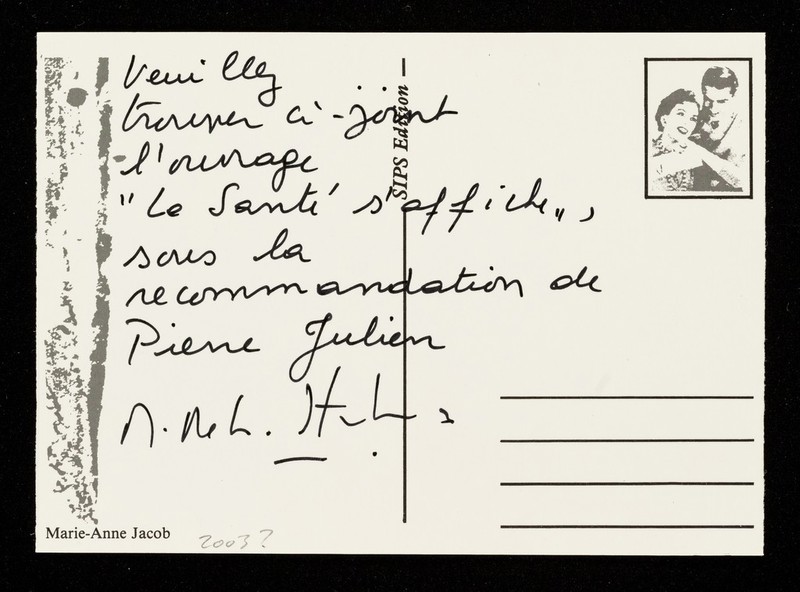 Veuillez
trouver ci-joint
l'ouvrage
"La Santé s'affiche",
sous la
recommandation de
Pierre Julien
SIPS Edition
Marie-Anne Jacob
2003?